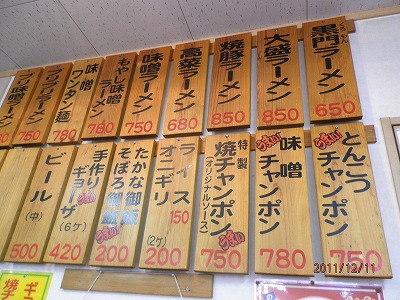 くろもん
黒門ラーメン
650
大盛ラーメン
850
焼豚ラーメン
850
高菜ラーメン
680
味噌ラーメン
750
もやし味噌
ラーメン
780
味噌
ワンタン麺
780
ラーメン
750
ラーメン
とんこつ
チャンポン
うまい
750
味噌
チャンポン
うまい
780
特製
焼チャンポン
(オリジナルソース)
うまい
750
ライス
150
オニギリ
(2ケ)
200
たかな御飯
そぼろ御飯
うまい
200
手作り
ギョーザ
(6ケ)
うまい
420
ビール
(中)
500
2011/12/11